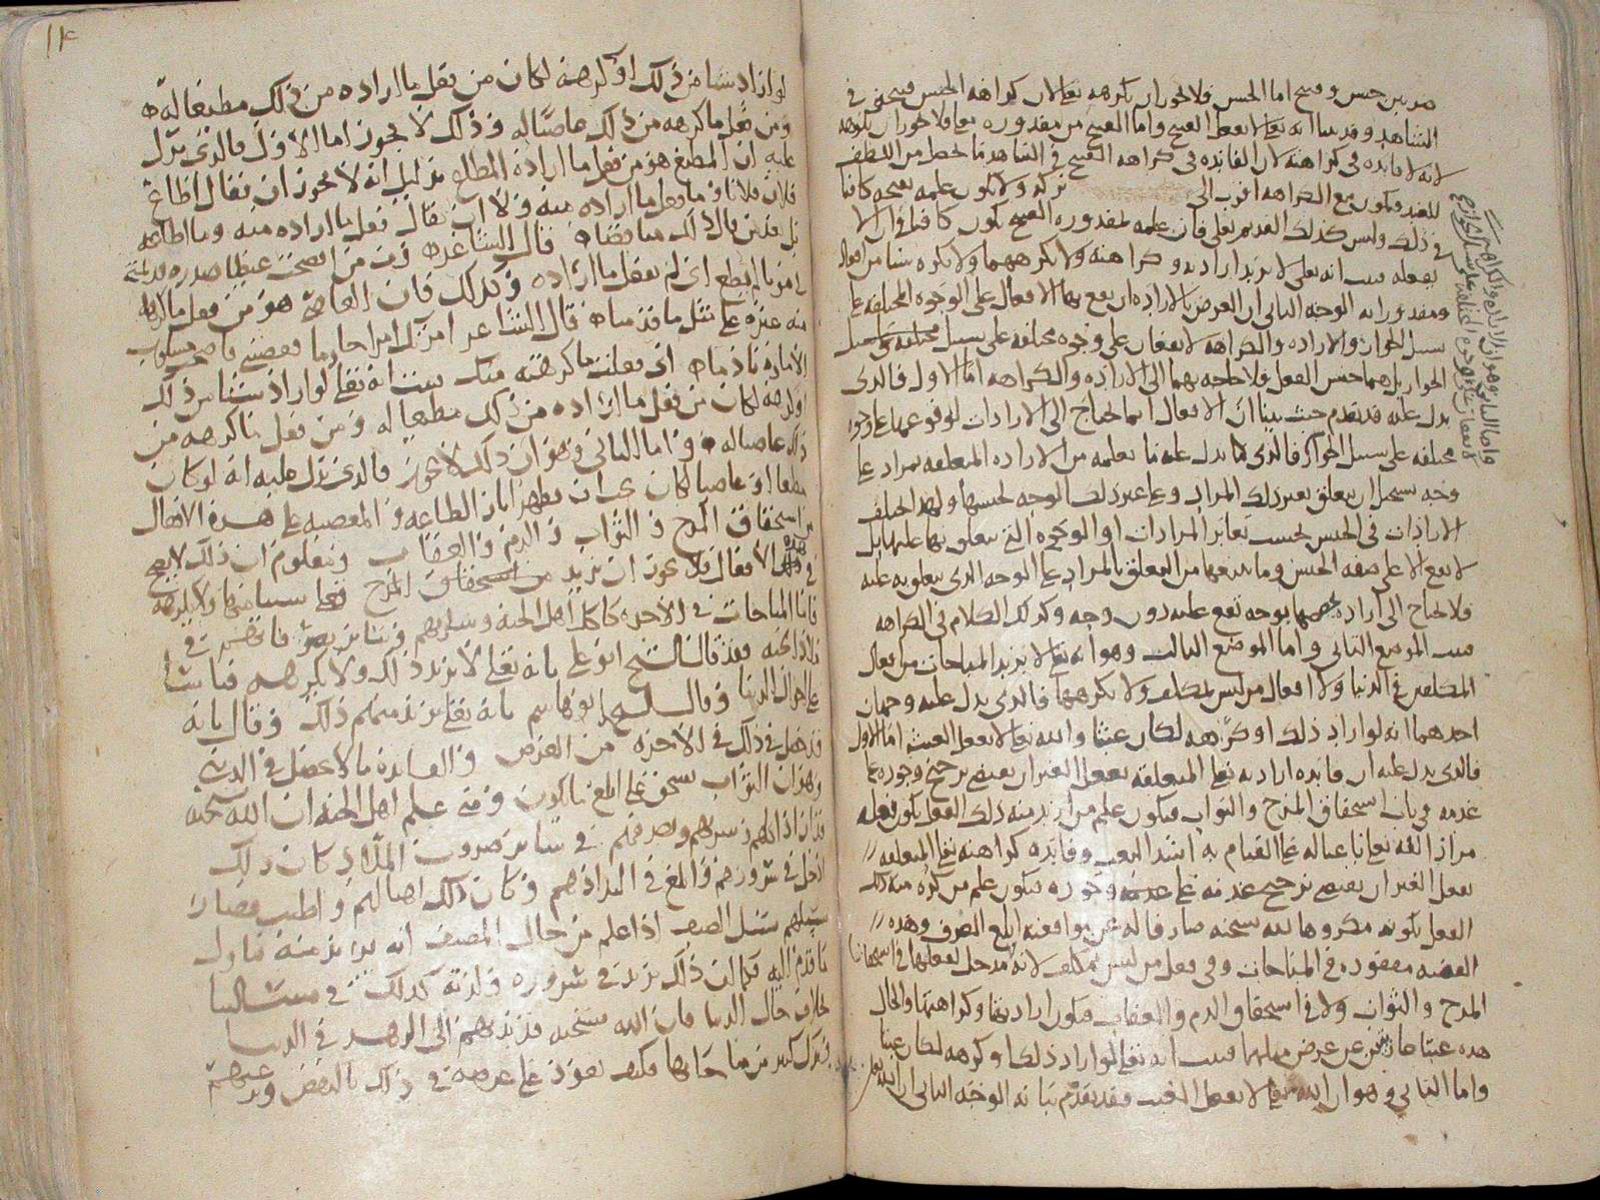 ضربين حسن وقبيح اما الحسن فلا يجوز ان يكرهه تعالى لان كراهة الحسن قبيحة في
الشاهد وقد بينا انه تعالى لا يفعل القبيح واما القبيح من مقدوره تعالى فلا يجوز ان يكرهه
لانه لا فايده في كراهته لان الفايده في كراهه القبيح في الشاهد ما يحصل من اللطف
للعبد فيكون مع الكراهه اقرب الى تركه ولا يكون علمه بقبحه كافيا
في ذلك وليس كذلك القديم تعالى فان علمه لمقدوره القبيح يكون كافيا في ان لا
يفعله فثبت انه تعلى لا يريد ارادته وكراهته ولا يكرههما ولا يكره شيا من افعاله
ومقدوراته الوجه الثاني ان الغرض بالاراده ان يقع بها الافعال على الوجوه المختلفه على
سبيل الجواز والاراده والكراهه لا يقعان على وجوه مختلفه على سبيل
الجواز بل هما جنس الفعل فلا حاجه بهما الى الاراده والكراهه اما الاول فالذي
يدل عليه قد تقدم حيث بينا ان الافعال انما تحتاج الى الارادات لوقوعها على وجوه
مختلفه على سبيل الجواز فالذي يدل عليه ما نعلمه من الاراده المتعلقه بمراد على
وجه يستحيل ان يتعلق بغير ذلك المراد وعلى غير ذلك الوجه لجنسها ولهذا اختلف
الارادات في الجنس بحسب تغاير المرادات او الوجوه التي يتعلق بها عليها بل
لا يقع الا على صفه الجنس وما يتبعها من التعلق بالمراد على الوجه الذي يتعلق به عليه
فلا يحتاج الى اراده تخصصها بوجه تقع عليه دون وجه وكذلك الكلام في الكراهه
فثبت الموضع الثاني واما الموضع الثالث وهو انه تعالى لا يريد المباحات من افعال
المكلفين في الدنيا ولا افعال من ليس بمكلف ولا يكرهها فالذي يدل عليه وجهان
احدهما انه لو اراد ذلك او كرهه لكان عبثا والله تعالى لا يفعل العبث اما الاول
فالذي يدل عليه ان فايده ارادته تعالى المتعلقه بفعل الغير ان يقتضي ترجيح وجوده على
عدمه في باب استحقاق المدح والثواب فيكون علم من اريد منه ذلك الفعل بكون فعله
مراد الله تعالى باعثا له على القيام به اشد البعث وفايده كراهته تعالى المتعلقه
بفعل الغير ان يقتضي ترجيح عدمه على وجوده فيكون علم من كره منه ذلك
الفعل بكونه مكروها لله سبحنه صارفا له عن مواقعته ابلغ الصرف وهذه
القضيه مفقوده في المباحات وفي فعل من ليس بمكلف لانه لا مدخل لفعلهما في استحقاق
المدح والثواب ولا في استحقاق الذم والعقاب فيكون ارادتها وكراهتها والحال
هذه عبثا عن غرض مثلها فثبت انه تعالى لو اراد ذلك او كرهه لكان عبثا
واما الثاني وهو ان الله تعالى لا يفعل العبث فقد تقدم بيانه الوجه الثاني ان الله تعالى
واما الثاني وهو ان الاراده والكراهه
لا يقعان على الوجوه المختلفه على سبيل الجواز
١٤
لو اراد شيا من ذلك او كرهه لكان من فعل ما اراده من ذلك مطيعا له
ومن فعل ما كرهه من ذلك عاصيا له وذلك لا يجوز اما الاول فالذي يدل
عليه ان المطيع هو من فعل ما اراده المطاع بدليل انه لا يجوز ان يقال اطاع
فلان فلانا وما فعل ما اراده منه ولا ان يقال فعل ما اراده منه وما اطاعه
بل يعد من قال ذلك مناقضا قال الشاعر رب من انضجت غيظا صدره قد تمنى
لي موتا لم يطع اي لم يفعل ما اراده وكذلك فان العاصي هو من فعل ما كرهه
منه غيره على مثل ما قدمناه قال الشاعر امرتك امرا حازما فعصيتني فاصبحت مسلوب
الاماره نادما اي فعلت ما كرهته منك فثبت انه تعالى لو اراد شيئا من ذلك
او كرهه لكان من فعل ما اراده من ذلك مطيعا له ومن فعل ما كرهه من
ذلك عاصيا له واما الثاني وهو ان ذلك لا يجوز فالذي يدل عليه انه لو كان
مطيعا او عاصيا لكان يجب ان يظهر امارات الطاعه والمعصيه على هذه الافعال
من استحقاق المدح والثواب والذم والعقاب ومعلوم ان ذلك لا يصح
في هذه الافعال فلا يجوز ان يريد من استحقاق المدح فيها شيا منها ولا يكرهه
فاما المباحات في الاخره كاكل اهل الجنه وشربهم وسائر تصرفاتهم في
ملاذ الجنه فقد قال الشيخ ابو علي بانه تعالى لا يريد ذلك ولا يكرهه قياسا
على احوال الدنيا وقال الشيخ ابو هاشم بانه تعالى يريد منهم ذلك وقال بانه
قد حصل في ذلك في الاخره من الغرض والفايده ما لا يحصل في الدنيا
وهو ان الثواب يستحق على ابلغ ما يكون ومتى علم اهل الجنه ان الله سبحنه
قد اراد اكلهم وشربهم وتصرفهم في سائر ضروب الملاذ كان ذلك
ادخل في سرورهم وابلغ في التذاذهم وكان ذلك اهنا لهم واطيب فصار
سبيلهم سبيل الضيف اذا علم من حال المضيف انه يريد منه تناول
ما قدم اليه فكما ان ذلك يزيد في سروره ولذته كذلك في مسألتنا
بخلاف حال الدنيا فان الله سبحنه قد ندبهم الى الزهد في الدنيا
وترك كثير من مباحاتها فكيف يعود على غرضه في ذلك بالنقض ويرغبهم